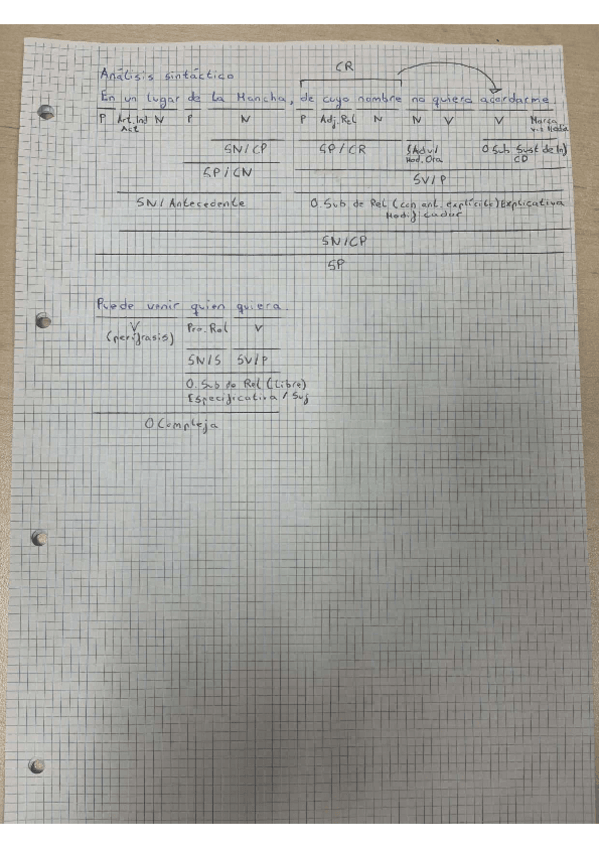 CR
Análisis sintáctico
En un lugar de la Mancha, de cuyo nombre no quiero acordarme
P Art.Ind N P N P Adj.Rel N N V V Marca
Act v. Media
SN/CP SP/CR SAdv/ O Sub Sust de Inf
Mod. Ora CD
SP/CN SV/P
SN/Antecedente O. Sub de Rel (con ant. explícito) Explicativa
SN/CP
SP
Puede venir quien quiera.
V Pro. Rel V
(perífrasis)
SN/S SV/P
O. Sub de Rel (Libre)
Especificativa / Suj
O Compleja